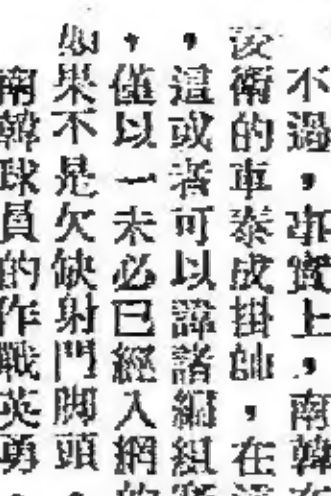 不過，事實上，南韓
後衛的車泰成掛帥，在
，這或者可以諱諸網組
，僅以一未必已經入網的
如果不是欠缺射門脚頭
南韓球員的作戰英勇，